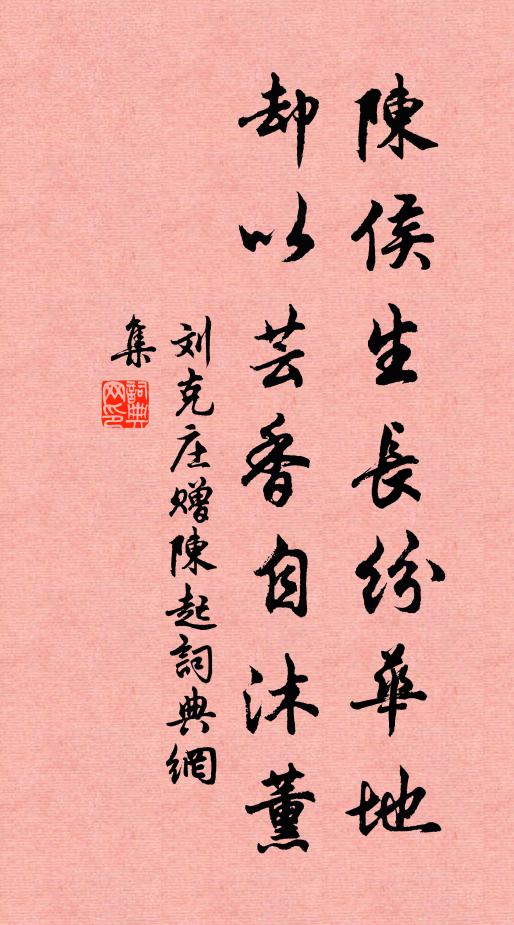 陳侯生長紛華地
却以芸香自沐薰
刘克庄赠陳起詞典網
集
詞典網印